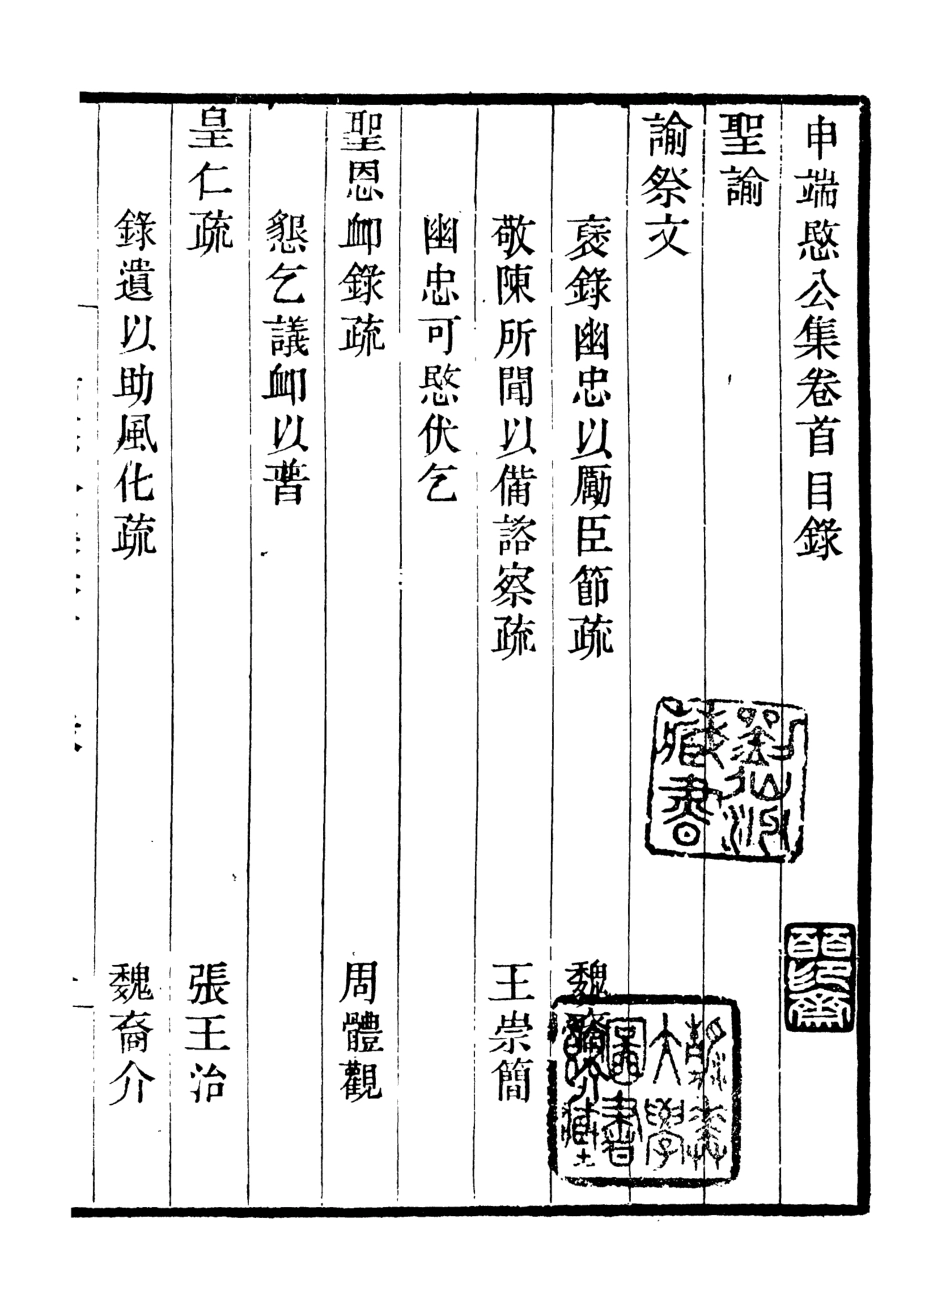 申端愍公集卷首目錄
聖諭
諭祭文
襃錄幽忠以勵臣節疏 魏裔介
敬陳所聞以備諮察疏 王崇簡
幽忠可愍伏乞
聖恩卹錄疏 周體觀
懇乞議卹以普
皇仁疏 張王治
錄遺以助風化疏 魏裔介
藏書
大學
圖書